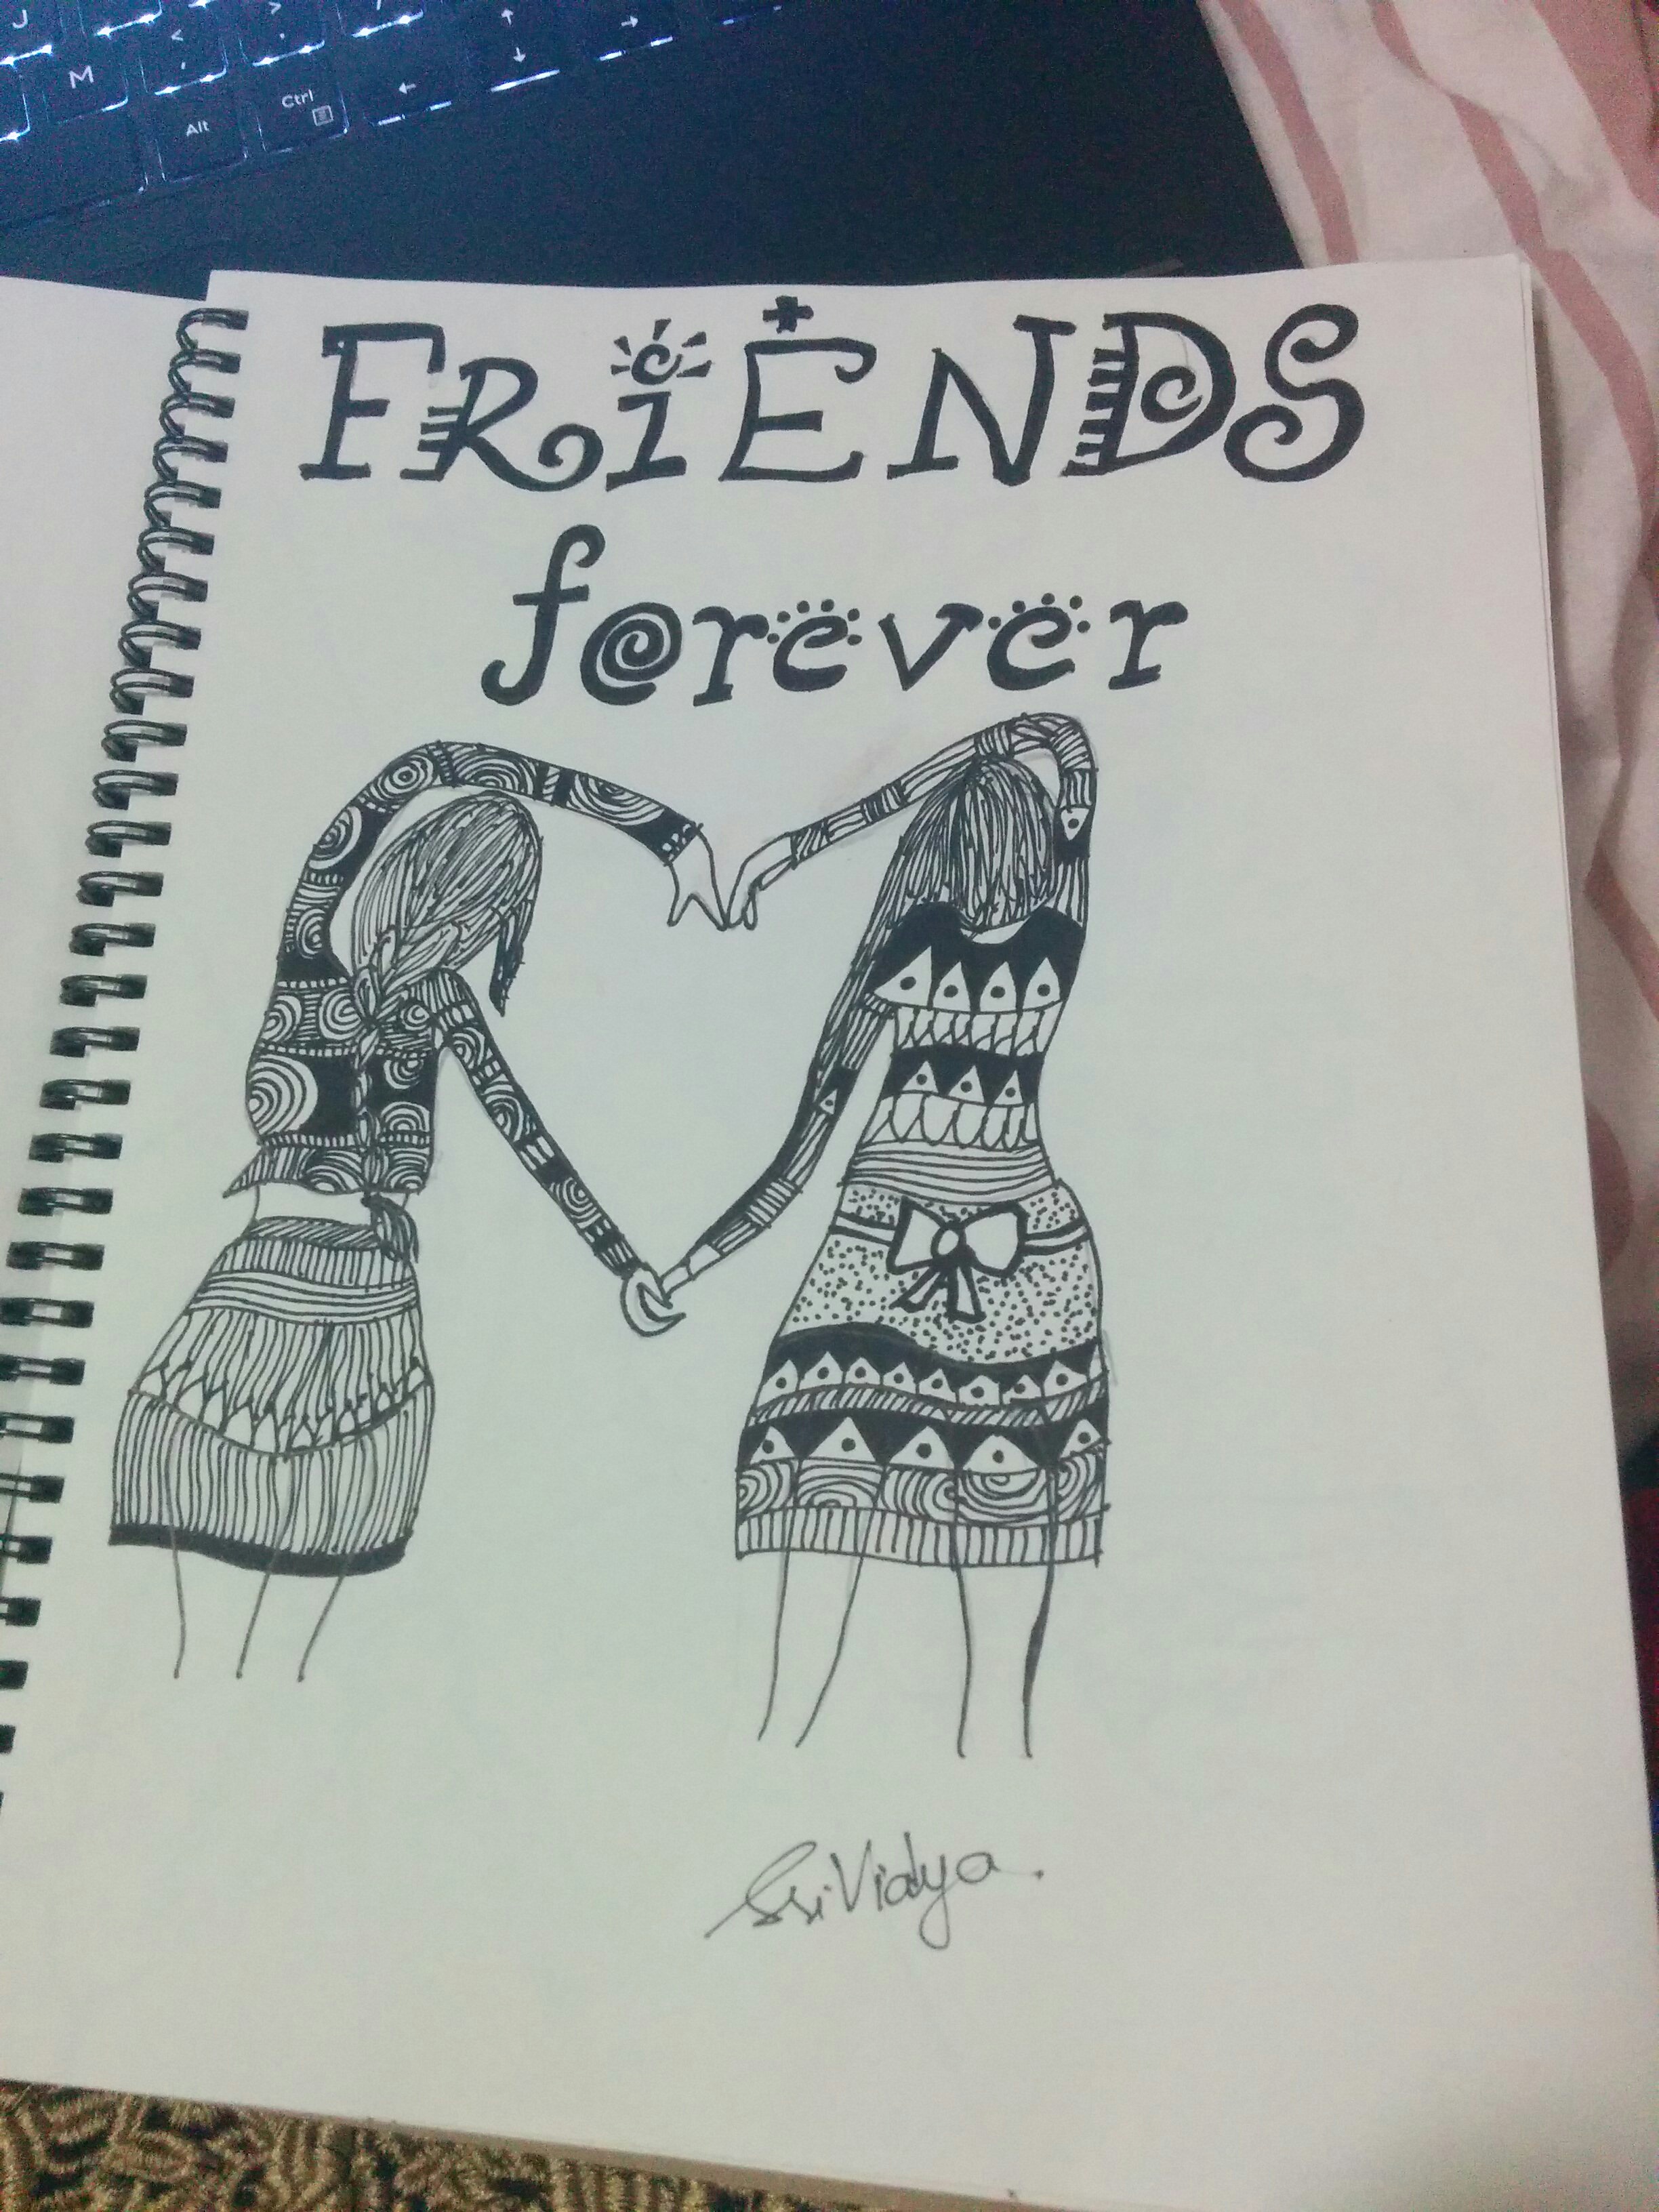 J
M
<
>
Alt
Ctrl
FRiENDS
forever
Sri Vidya.